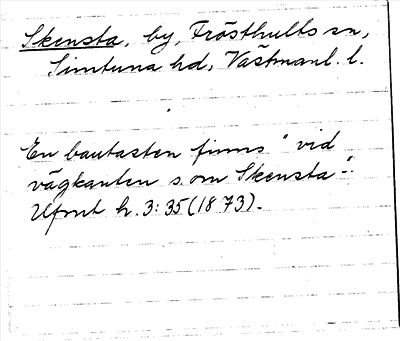 Skensta, by, Frösthults sn,
Simtuna hd, Västmanl. l.
En bautasten finns "vid
vägkanten s. om Skensta".
Ufmt h. 3: 35 (1873).